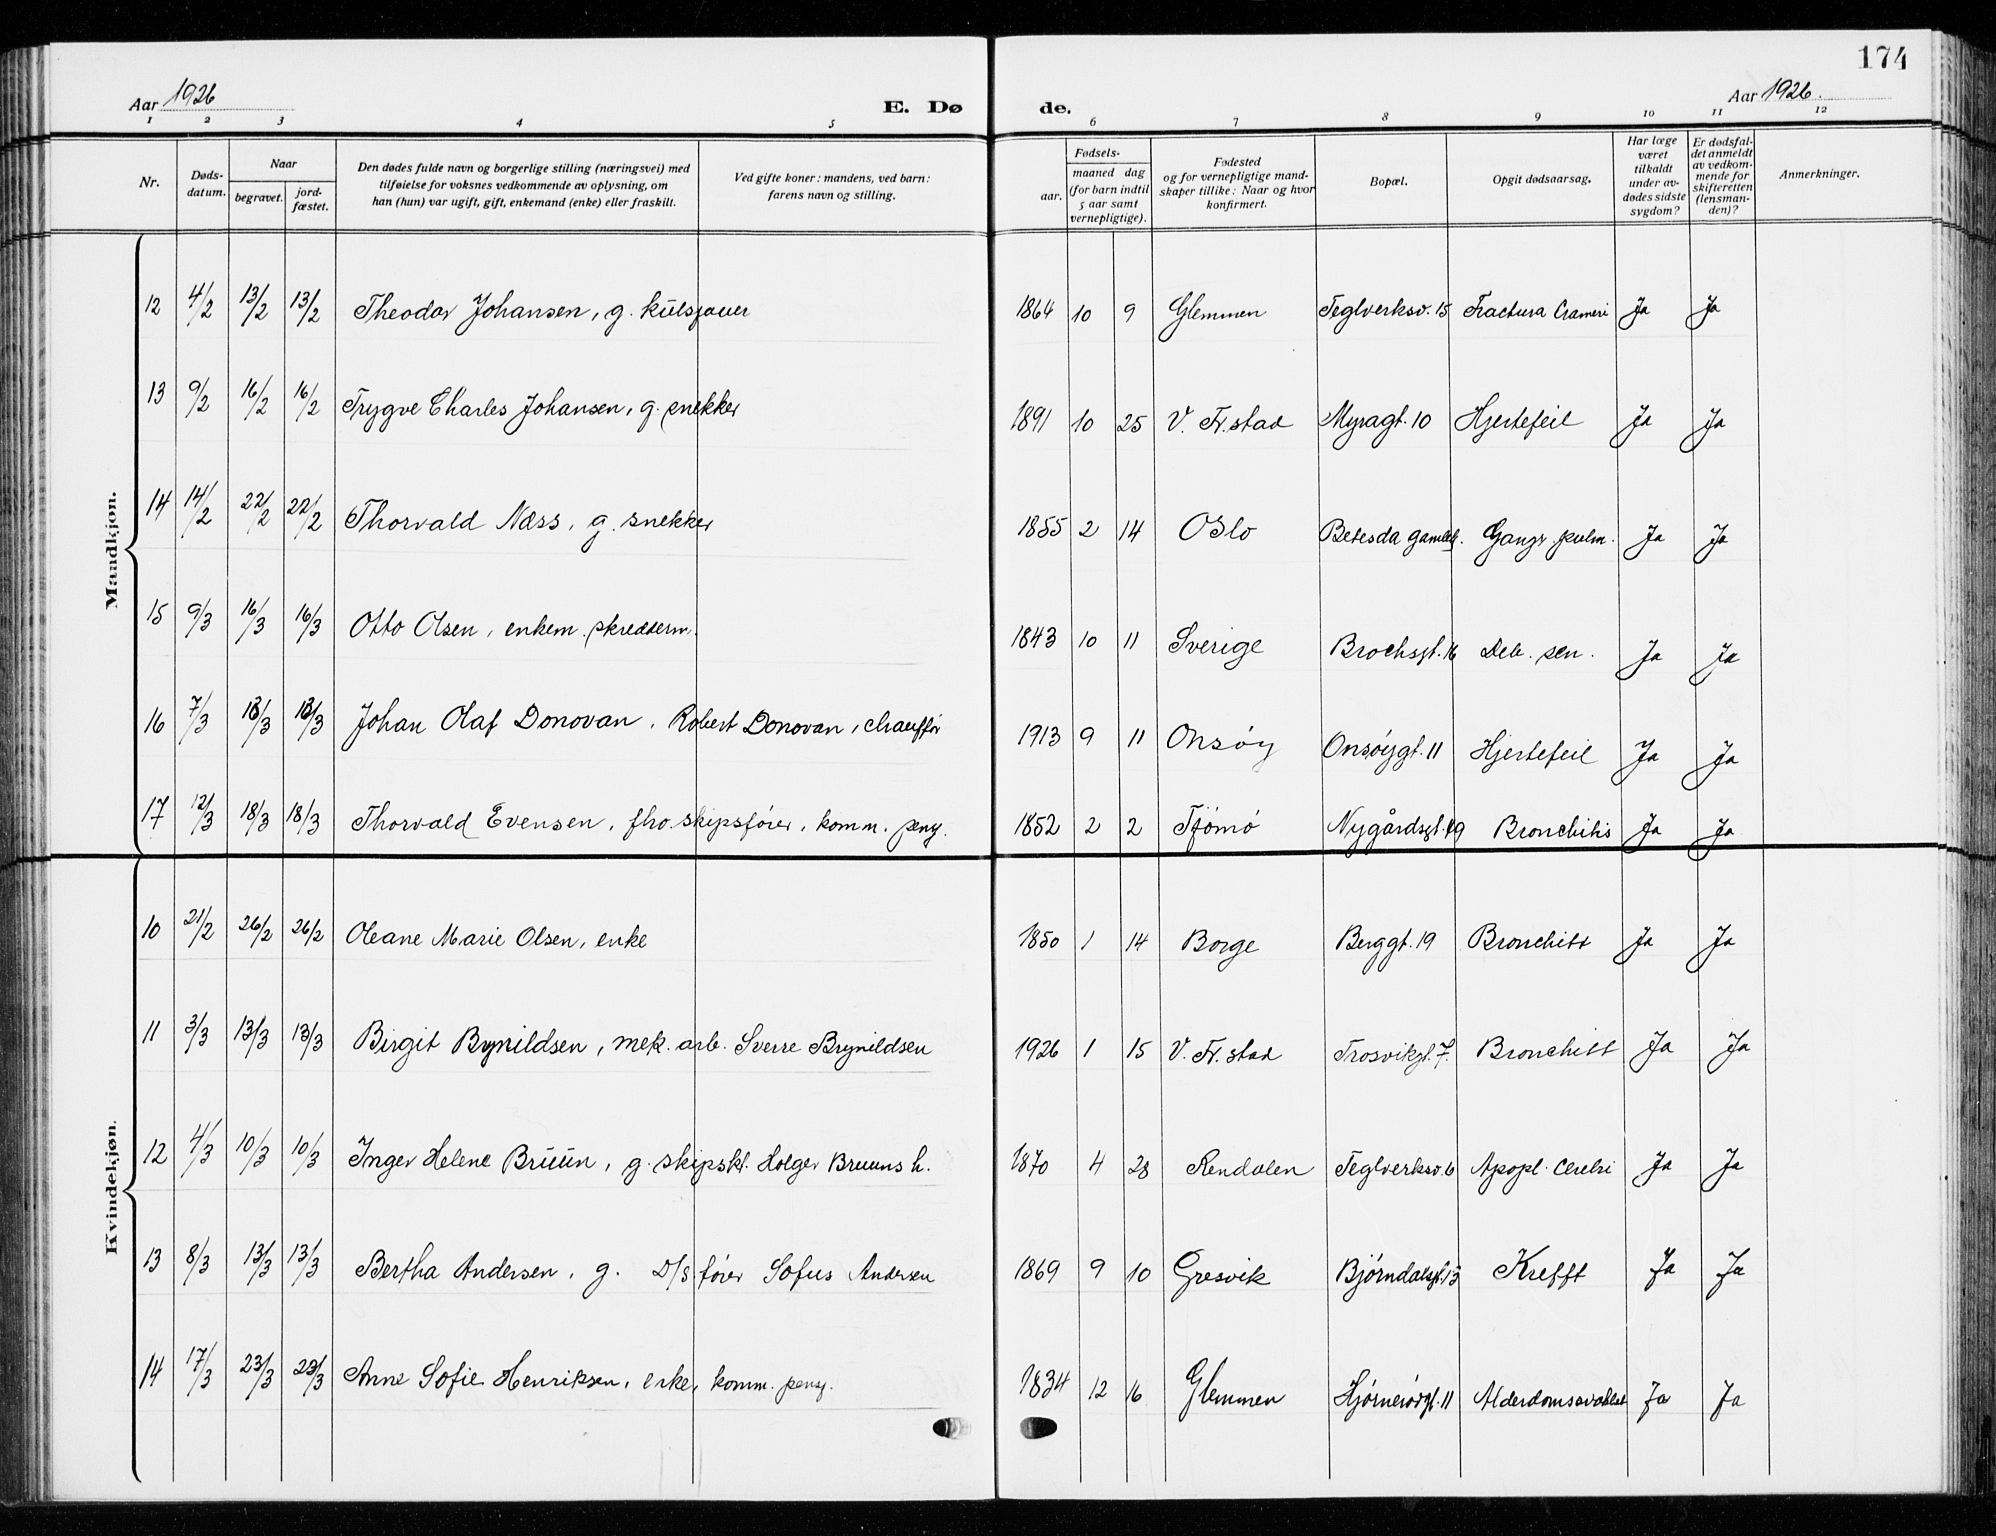 174
Aar 1926 E. Dø de. Aar 1926.
1 2 3 4 5 6 7 8 9 10 11 12
Nr. Døds-datum. Naar begravet. jord-fæstet. Den dødes fulde navn og borgerlige stilling (næringsvei) med tilføielse for voksnes vedkommende av oplysning, om han (hun) var ugift, gift, enkemand (enke) eller fraskilt. Ved gifte koner: mandens, ved barn: farens navn og stilling. Fødsels- aar. maaned dag (for barn indtil 5 aar samt vernepligtige). Fødested og for vernepligtige mand-skaper tillike: Naar og hvor konfirmert. Bopæl. Opgit dødsaarsag. Har læge været tilkaldt under av-dødes sidste sygdom? Er dødsfal-det anmeldt av vedkom-mende for skifteretten (lensman-den)? Anmerkninger.
Mandkjøn.
12 4/2 13/2 13/2 Theodor Johansen, g. kulsjauer 1864 10 9 Glemmen Teglverksv. 15 Fractura Ja Ja
13 9/2 16/2 16/2 Trygve Charles Johansen, g. snekker 1891 10 25 V. Fr.stad Myragt. 10 Hjertefeil Ja Ja
14 14/2 22/2 22/2 Thorvald Næss, g. snekker 1855 2 14 Oslo Betesda Gangr pulm. Ja Ja
15 9/3 16/3 16/3 Otto Olsen, enkem. skrædderm. 1843 10 11 Sverige Brochsgt. 16 Deb. sen. Ja Ja
16 7/3 13/3 13/3 Johan Olaf Donovan, Robert Donovan, chauffør 1913 9 11 Onsøy Onsøygt. 11 Hjertefeil Ja Ja
17 12/3 18/3 18/3 Thorvald Evensen, fho. skipsfører, komm. pens. 1852 2 2 Tjømø Nygårdsgt. Bronchitis Ja Ja
Kvindekjøn.
10 21/2 26/2 26/2 Oleane Marie Olsen, enke 1850 1 14 Borge Berggt. 19 Bronchitt Ja Ja
11 3/3 13/3 13/3 Birgit Brynildsen, mek. arb. Sverre Brynildsen 1926 1 15 V. Fr. stad Trosvikgt. 7. Bronchitt Ja Ja
12 4/3 10/3 10/3 Inger Helene Bruun, g. skipskt. Holger Bruuns h. 1870 4 28 Rendalen Teglverksv. 6 Apopl. cerebri Ja Ja
13 8/3 13/3 13/3 Bertha Andersen, g. D/S. fører Sofus Andersen 1869 9 10 Gresvik Bjørndalsgt. 13 Krefft Ja Ja
14 17/3 23/3 23/3 Anne Sofie Henriksen, enke, komm. pens. 1834 12 16 Glemmen Hjørnerødgt. 11 Alderdomssvakhet Ja Ja